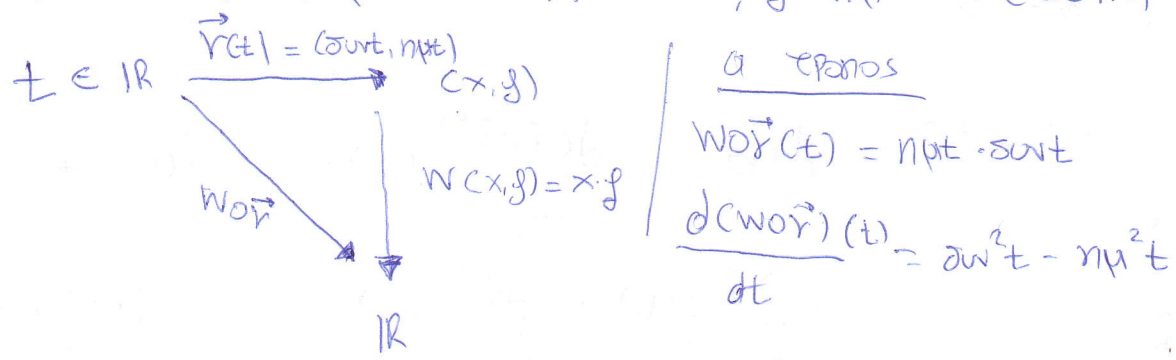 t ∈ ℝ
r⃗(t) = (συνt, ημt)
(x, y)
W∘r⃗
W(x, y) = x·y
ℝ
α τρόπος
W∘r⃗(t) = ημt · συνt
d(W∘r⃗)(t)/dt = συν²t - ημ²t